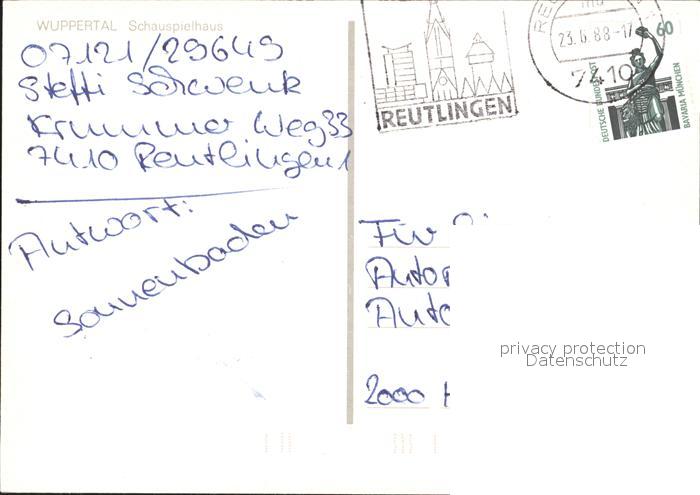 WUPPERTAL Schauspielhaus
07121/29649
Steffi Schwenk
Krummer Weg 33
7410 Reutlingen 1
Antwort:
Sonnenbaden
REUTLINGEN
23.6.88-17
7410
60
DEUTSCHE BUNDESPOST
BAVARIA MÜNCHEN
Für
2000 H
privacy protection
Datenschutz